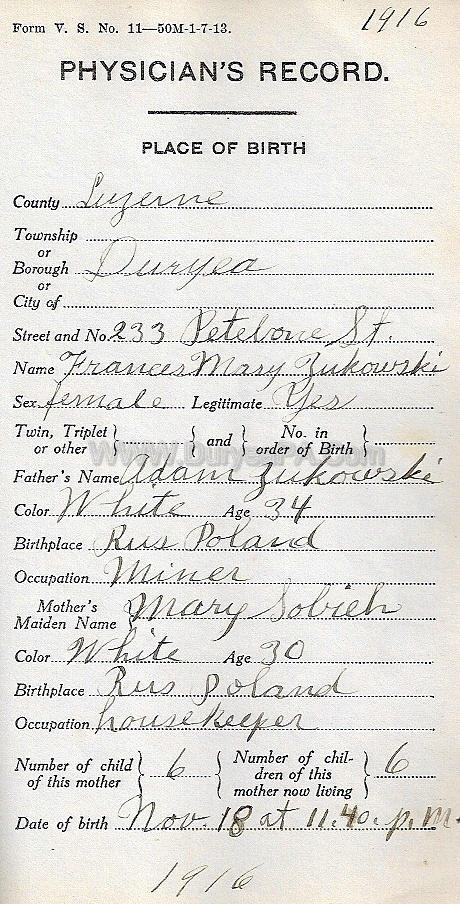 1916
Form V. S. No. 11—50M-1-7-13.
PHYSICIAN'S RECORD.
PLACE OF BIRTH
County Luzerne
Township
or
Borough Duryea
or
City of
Street and No. 233 Petebone St.
Name Frances Mary Zukowski
Sex female Legitimate Yes
Twin, Triplet or other } { and } No. in order of Birth }
www.DuryeaPA.com
Father's Name Adam Zukowski
Color White Age 34
Birthplace Rus Poland
Occupation Miner
Mother's Maiden Name } Mary Sobieh
Color White Age 30
Birthplace Rus Poland
Occupation housekeeper
Number of child of this mother } 6 { Number of children of this mother now living } 6
Date of birth Nov. 18 at 11.40. p.m.
1916